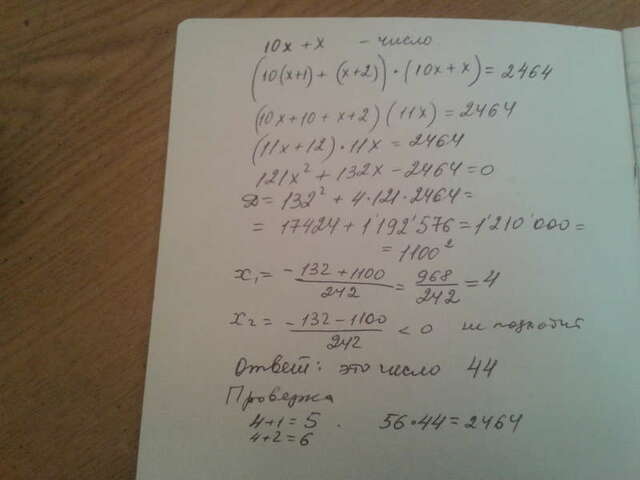 10x + x - число
(10(x+1) + (x+2)) • (10x + x) = 2464
(10x + 10 + x + 2) (11x) = 2464
(11x + 12) • 11x = 2464
121x² + 132x - 2464 = 0
D = 132² + 4•121•2464 =
= 17424 + 1'192'576 = 1'210'000 =
= 1100²
x₁ = -132 + 1100 / 242 = 968 / 242 = 4
x₂ = -132 - 1100 / 242 < 0 не подходит
Ответ: это число 44
Проверка
4+1 = 5 . 56•44 = 2464
4+2 = 6